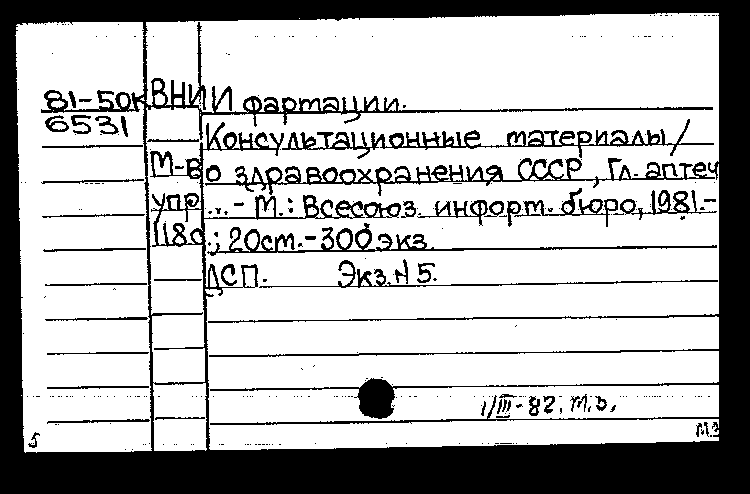 81-50к ВНИИ фартации.
6531
Консультационные материалы/
М-во здравоохранения СССР, Гл. аптеч
упр. ... - М.: Всесоюз. инфорт. бюро, 1981.-
118с.; 20ст. - 300экз.
ДСП. Экз. N 5.
1/III-82. т.б.
5